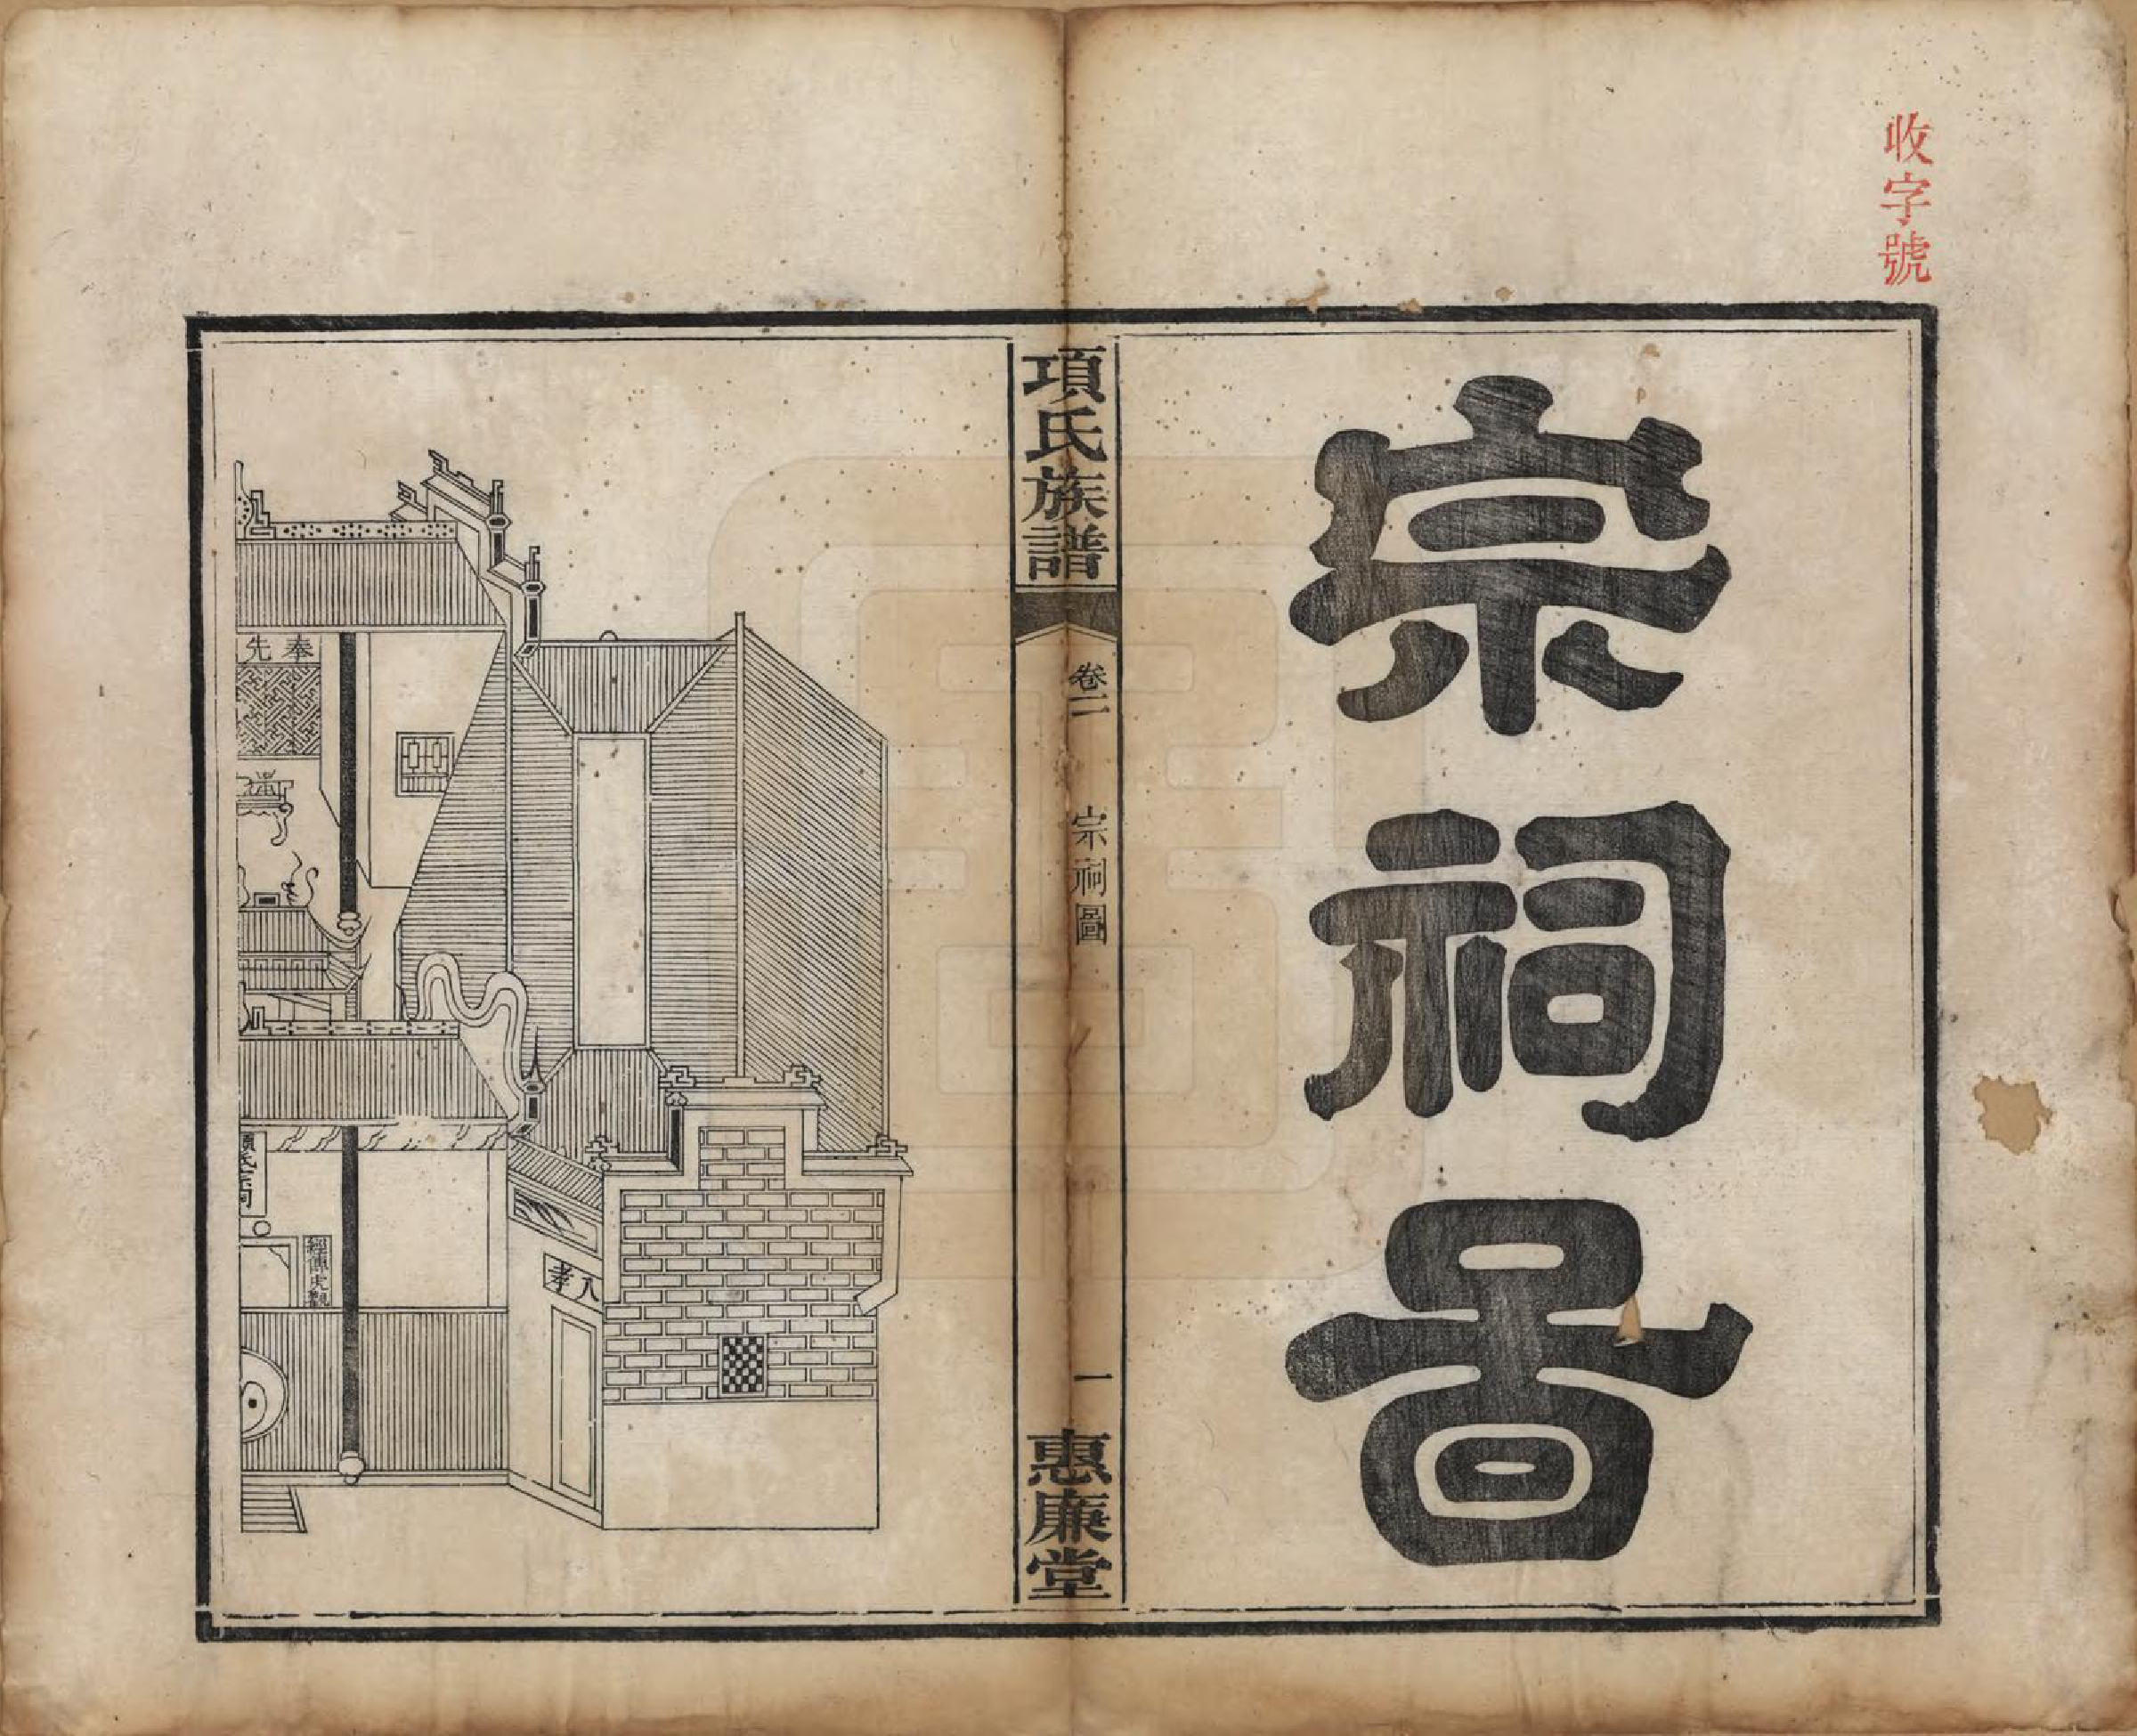 收字號
宗祠啚
項氏族譜
卷二
宗祠圖
一
惠廉堂
奉先
項氏宗祠
經傳虎觀
入孝